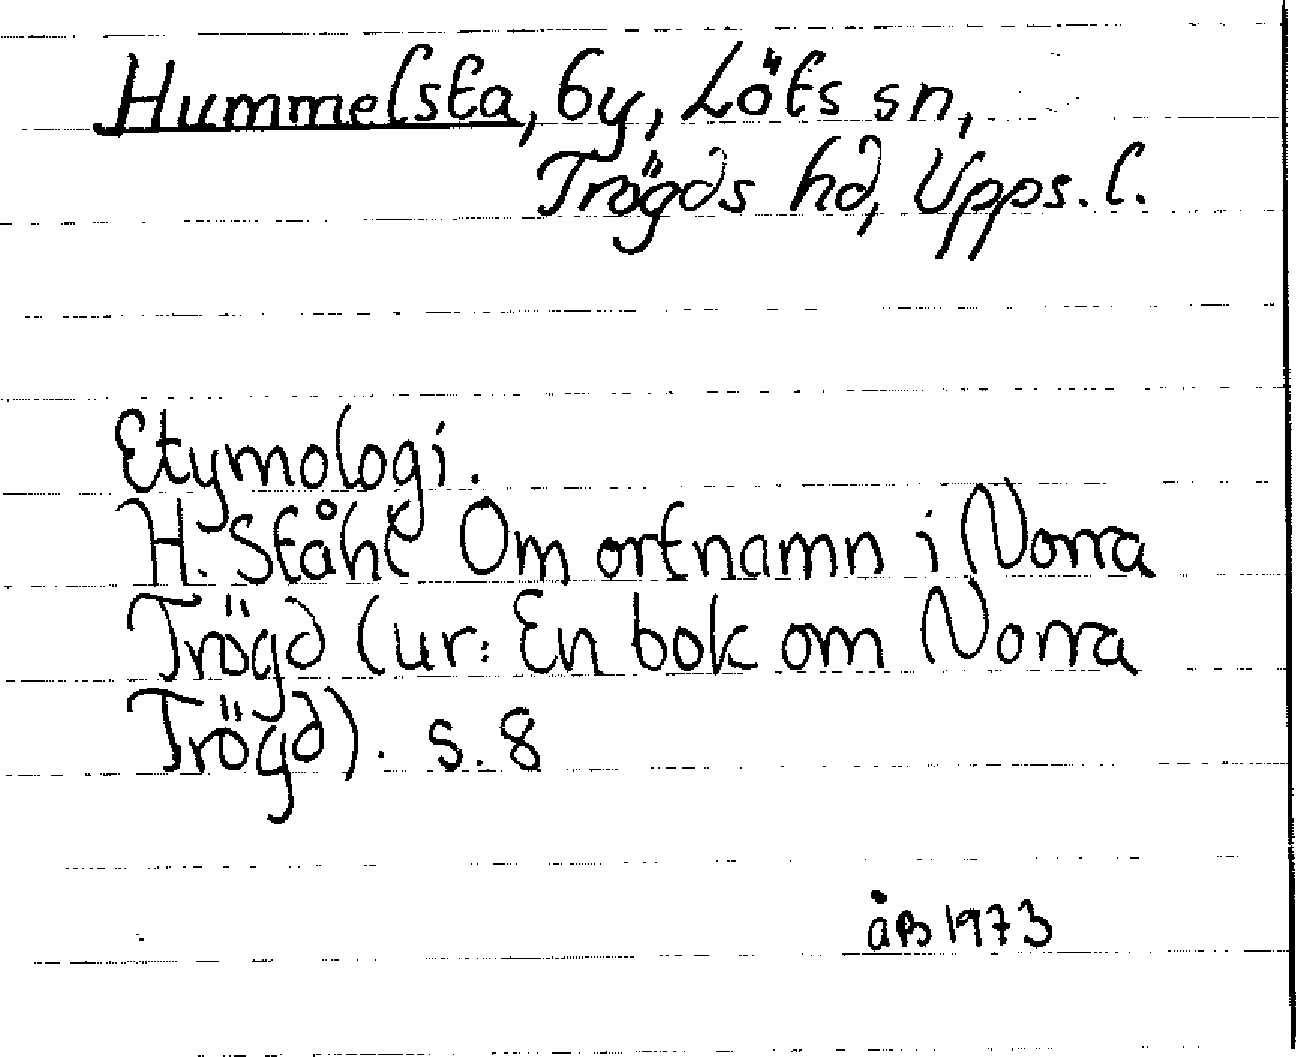 Hummelsta, by, Löts sn,
Trögds hd, Upps. l.
Etymologi.
H. Ståhl Om ortnamn i Norra
Trögd (ur: En bok om Norra
Trögd). s. 8
åB 1973